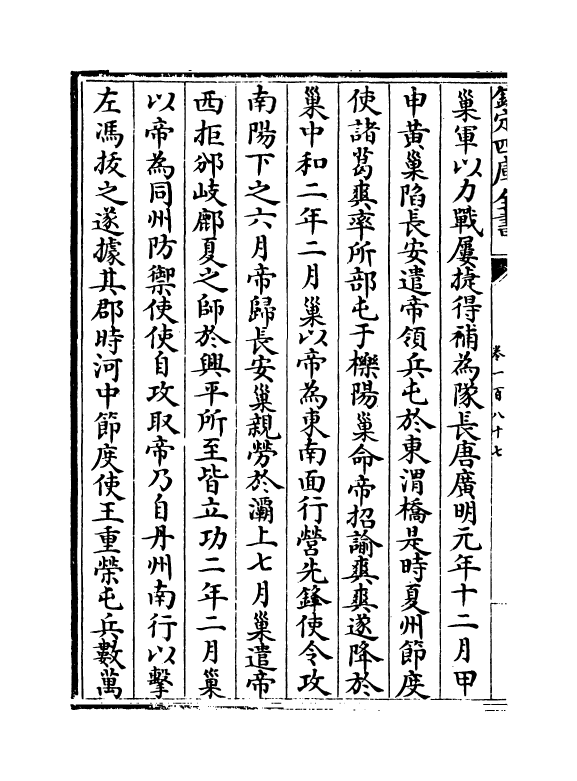 欽定四庫全書
卷一百八十七
巢軍以力戰屢捷得補為隊長唐廣明元年十二月甲
申黃巢陷長安遣帝領兵屯於東渭橋是時夏州節度
使諸葛爽率所部屯于櫟陽巢命帝招諭爽爽遂降於
巢中和二年二月巢以帝為東南面行營先鋒使令攻
南陽下之六月帝歸長安巢親勞於灞上七月巢遣帝
西拒邠岐鄜夏之師於興平所至皆立功二年二月巢
以帝為同州防禦使使自攻取帝乃自丹州南行以擊
左馮拔之遂據其郡時河中節度使王重榮屯兵數萬